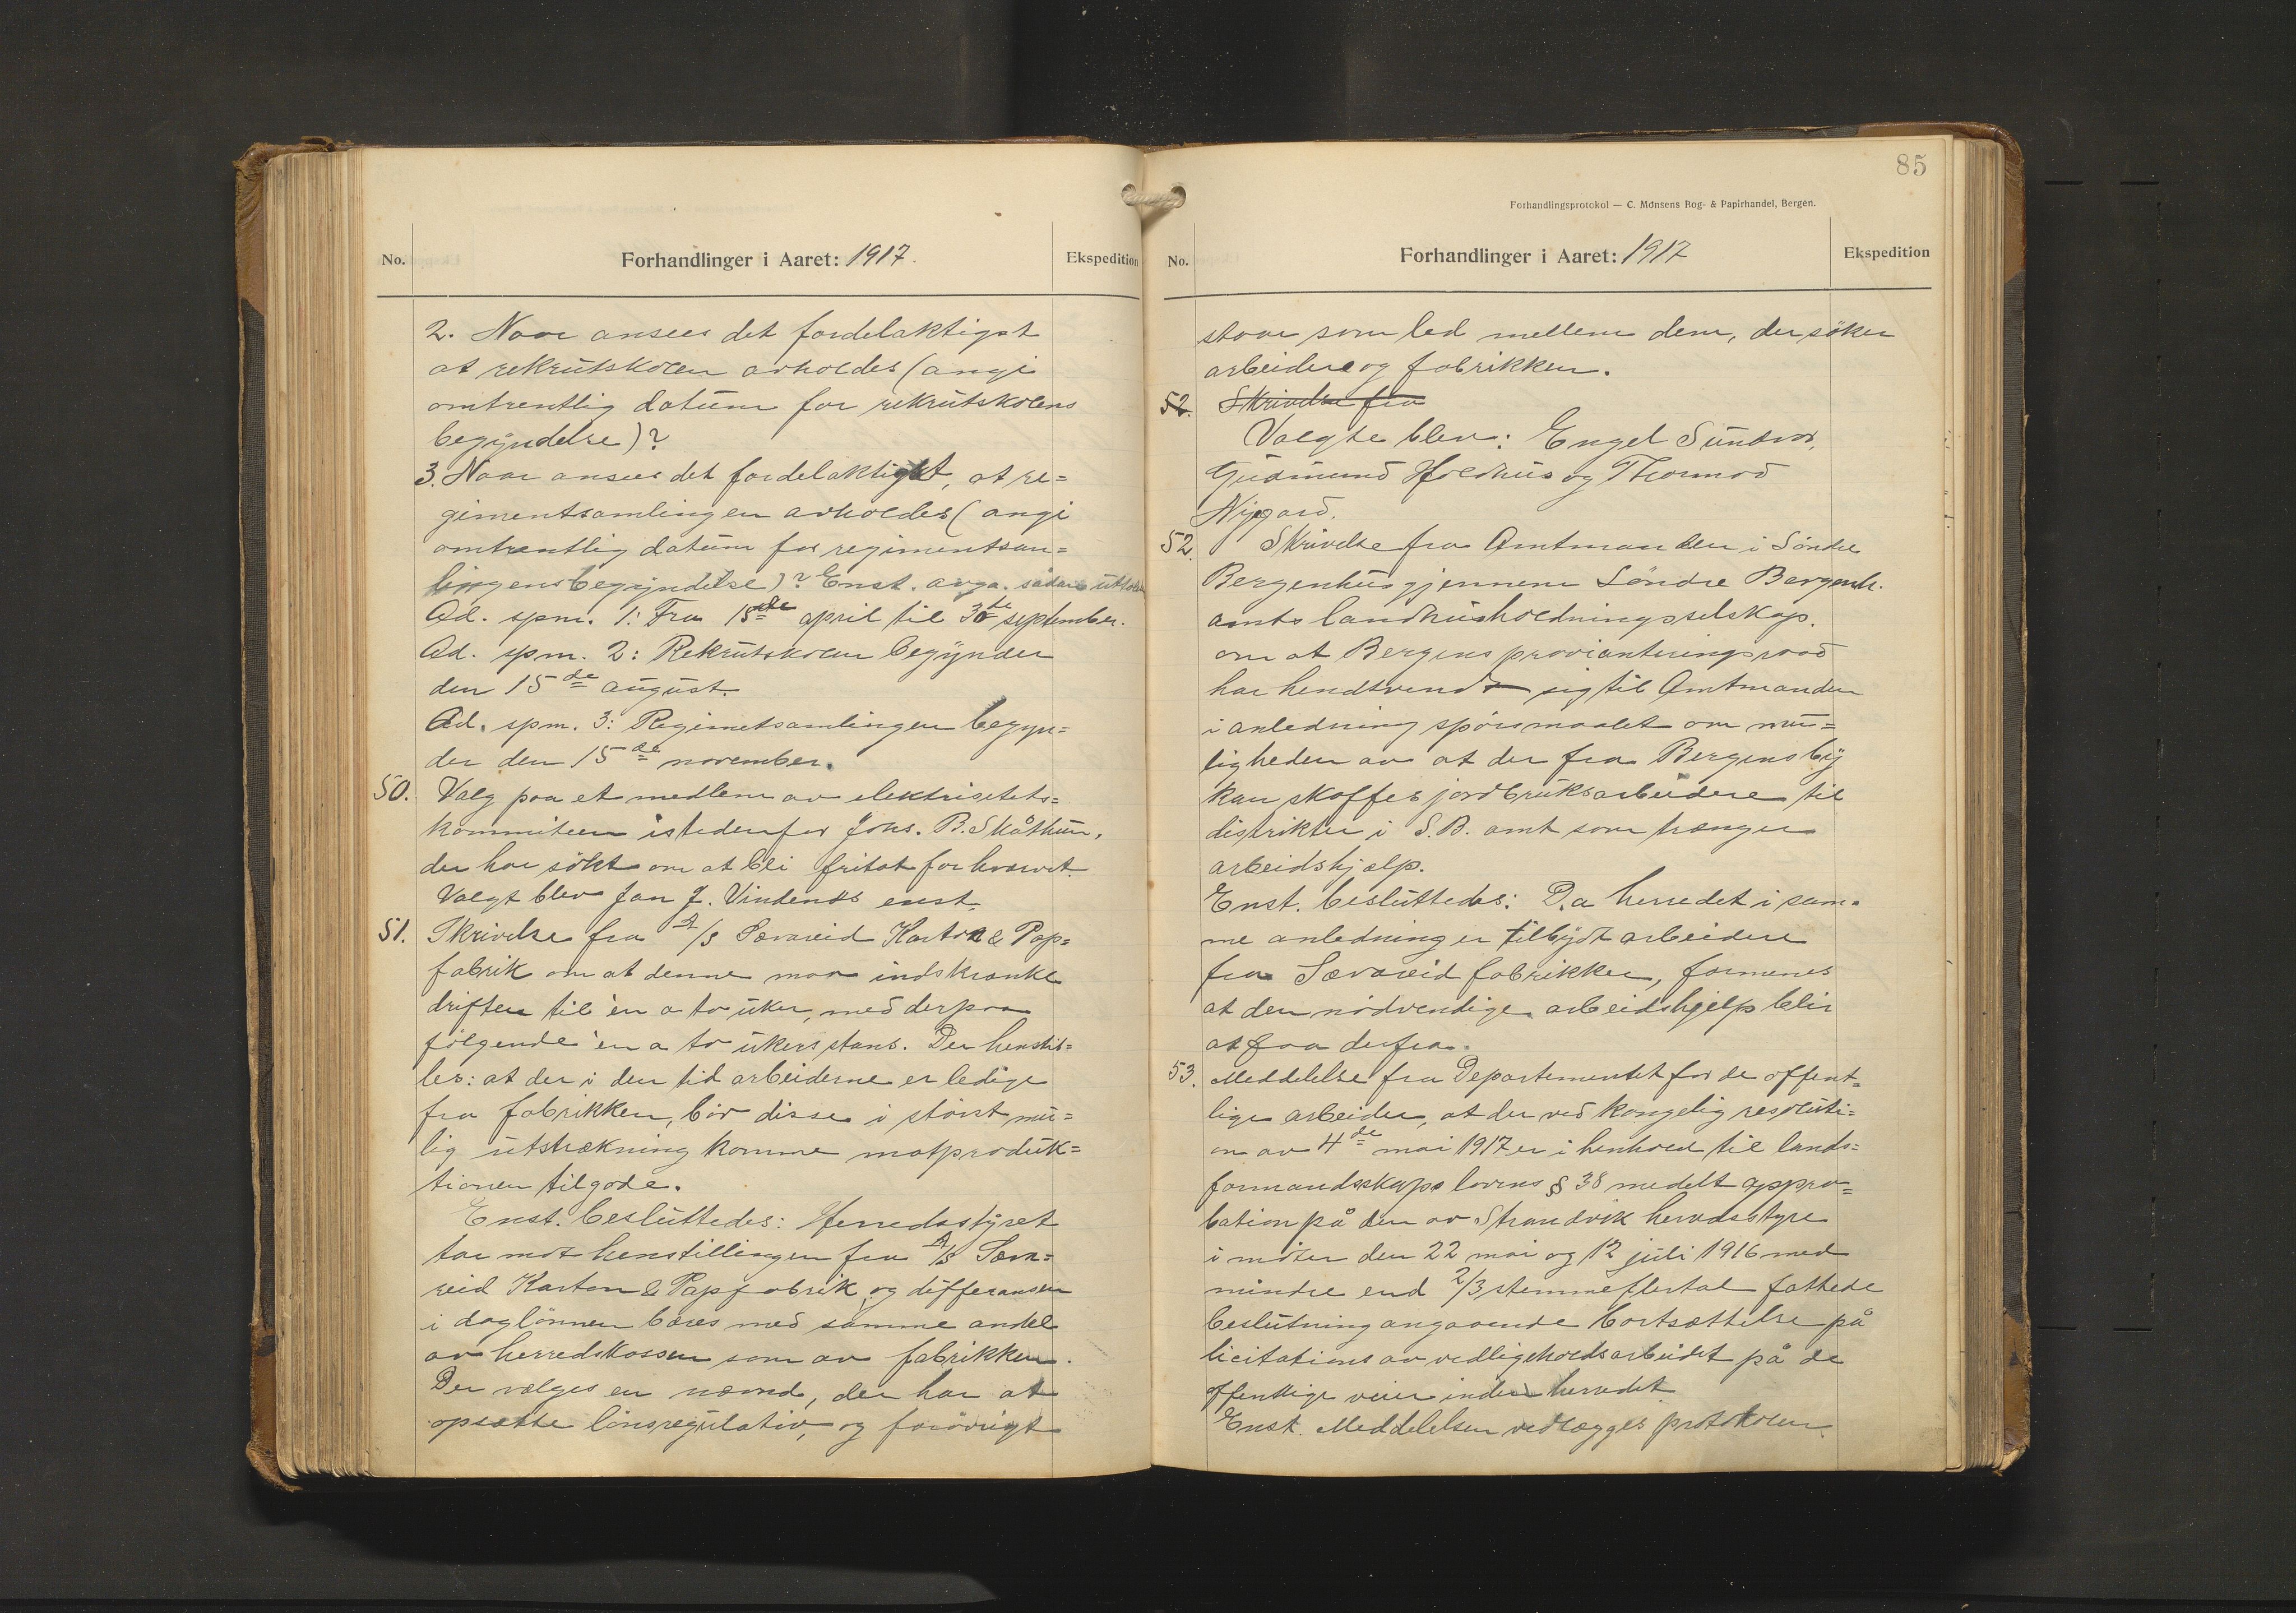 No.
Forhandlinger i Aaret: 1917.
Ekspedition
2. Naar ansees det fordelaktigst
at rekrutskolen avholdes (angi
omtrentlig datum for rekrutskolens
begyndelse)?
3. Naar ansees det fordelaktigst, at re=
gimentsamlingen avholdes (angi
omtrentlig datum for regimentsam=
lingens begyndelse)? Enst. avga. sådan uttalelse
Ad. spm. 1: Fra 15de april til 30te september.
Ad. spm. 2: Rekrutskolen begynder
den 15de august.
Ad. spm. 3: Regimetsamlingen begyn=
der den 15de november.
50. Valg paa et medlem av elektrisitets=
kommiteen istedenfor Johs. B. Skåthun,
der har søkt om at bli fritat for hvervet.
Valgt blev Jan J. Vindenes enst.
51. Skrivelse fra A/S Sævareid Karton & Pap=
fabrik om at denne maa indskrænke
driften til èn a to uker, med derpaa
følgende èn a to ukers stans. Der henstil=
les: at der i den tid arbeiderne er ledige
fra fabrikken, bør disse i størst mu=
lig utstrækning komme matproduk=
tionen tilgode.
Enst. besluttedes: Herredsstyret
tar mot henstillingen fra A/S Sæva=
reid Karton & Papfabrik, og differansen
i daglønnen bæres med samme andel
av herredskassen som av fabrikken.
Der vælges en nævnd, der har at
opsætte lønsregulativ, og forøvrigt
85
Forhandlingsprotokol — C. Monsens Bog- & Papirhandel, Bergen.
No.
Forhandlinger i Aaret: 1917
Ekspedition
staar som led mellem dem, der søker
arbeidere og fabrikken.
52. Skrivelse fra
Valgte blev: Engel Sundvor,
Gudmund Holdhus og Thormod
Nygard.
52. Skrivelse fra Amtmanden i Søndre
Bergenhus gjennem Søndre Bergenh.
amts landhusholdningsselskap.
om at Bergens provianteringsraad
har hendvendt sig til Amtmanden
i anledning spørsmaalet om mu=
ligheden av at der fra Bergens by
kan skaffes jordbruksarbeidere til
distrikter i S.B. amt som trænger
arbeidshjælp.
Enst. besluttedes: Da herredet i sam=
me anledning er tilbydt arbeidere
fra Sævareid fabrikker, formenes
at den nødvendige arbeidshjelp blir
at faa derfra.
53. Meddelelse fra Departementet for de offent=
lige arbeider, at der ved kongelig resoluti=
on av 4de mai 1917 er i henhold til lands=
formandsskaps lovens § 38 medelt appro=
bation på den av Strandvik herredsstyre
i møter den 22 mai og 12 juli 1916 med
mindre end 2/3 stemmeflertal fattede
beslutning angaaende bortsættelse på
licitations av vedligeholdsarbeidet på de
offentlige veier inden herredet
Enst. Meddelelsen vedlægges protokolen.